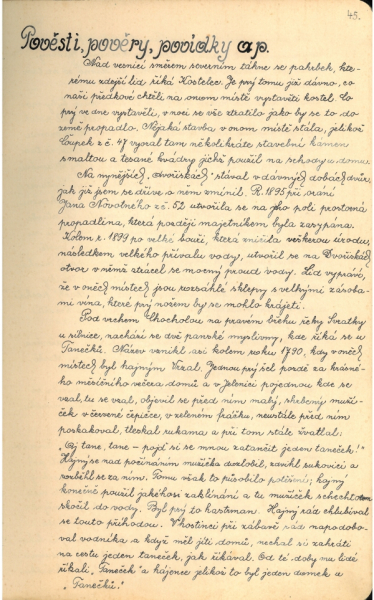 45.
Pověsti, pověry, povídky ap.
Nad vesnicí směrem severním táhne se pahrbek, kte-
rému zdejší lid říká Kostelec. Je prý tomu již dávno, co
naši předkové chtěli na onom místě vystavěti kostel. Co
prý ve dne vystavěli, v noci se vše ztratilo jako by se to do
země propadlo. Nějaká stavba v onom místě stála, jelikož
Čupek z č. 47 vyoral tam několikráte stavební kámen
s maltou a tesané kvádry jichž použil na schody u domu.
Na nynějších „dvořiskách" stával v dávných dobách dvůr,
jak již jsem se dříve o něm zmínil. R. 1895 při orání
Jana Novotného z č. 52 utvořila se na jeho poli prostorná
propadlina, která později majetníkem byla zasypána.
Kolem r. 1899 po velké bouři, která zničila veškerou úrodu,
následkem velkého přívalu vody, utvořil se na Dvořiskách
otvor v němž ztrácel se mocný proud vody. Lid vypráví,
že v oněch místech jsou rozsáhlé sklepy s velkými zásoba-
mi vína, které prý nožem by se mohlo krájeti.
Pod vrchem Chocholou na pravém břehu řeky Svratky
u silnice, nachází se dvě panské myslivny, kde říká se u
Tanečků. Název vznikl asi kolem roku 1790, kdy v oněch
místech byl hajným Vrzal. Jednou prý šel pozdě za krásné-
ho měsíčného večera domů a v Jelenici pojednou kde se
vzal, tu se vzal, objevil se před ním malý, shrbený muží-
ček v červené čepičce, v zeleném fráčku, neustále před ním
poskakoval, tleskal rukama a při tom stále žvatlal:
„Oj tane, tane – pojď si se mnou zatančit jeden taneček!"
Hajný se nad počínáním mužíčka dozlobil, zavrhl sukovici a
rozběhl se za ním. Tomu však to působilo potěšení; hajný
konečně použil jakéhosi zaklínání a tu mužíček s chechtotem
skočil do vody. Byl prý to hastrman. Hajný rád chlubíval
se touto příhodou. V hostinci při zábavě rád napodobo-
val vodníka a když měl jíti domů, nechal si zahráti
na cestu jeden taneček, jak říkával. Od té doby mu lidé
říkali „Taneček" a hájence jelikož to byl jeden domek u
„Tanečků."